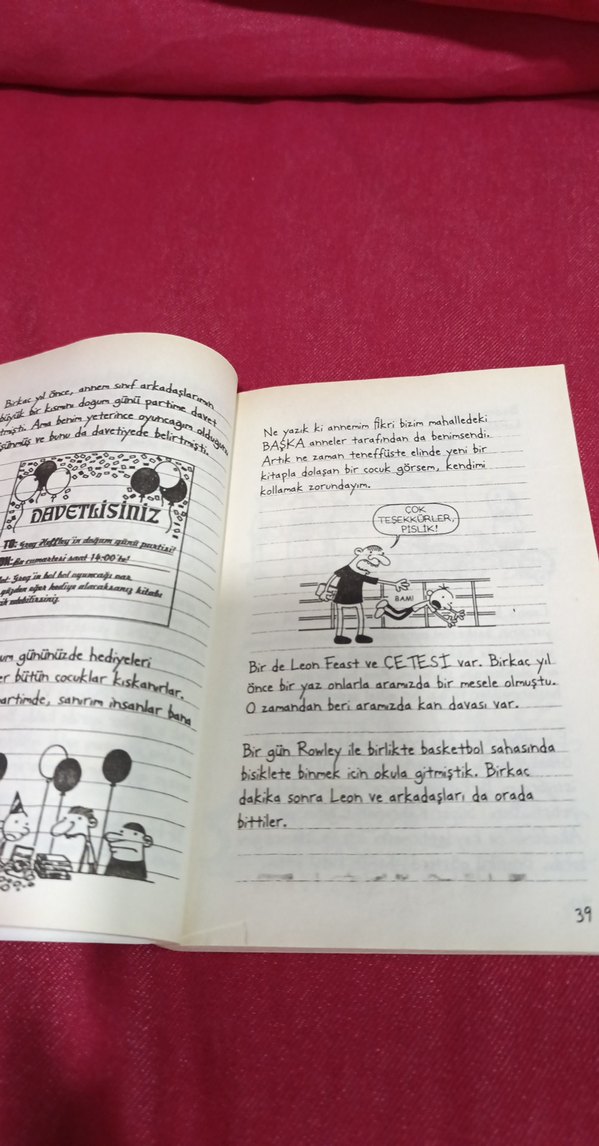 Birkaç yıl önce, annem sınıf arkadaşlarımın
büyük bir kısmını doğum günü partime davet
etmişti. Ama benim yeterince oyuncağım olduğunu
ve bunu da davetiyede belirtmişti.
DAVETLİSİNİZ
Greg Heffley'in doğum günü partisi!
Bu cumartesi saat 14:00'te!
Greg'in bol bol oyuncağı var
yüzden eğer hediye alacaksanız kitabı
edebilirsiniz.
gününüzde hediyeleri
bütün çocuklar kıskanırlar.
partimde, sanırım insanlar bana
Ne yazık ki annemim fikri bizim mahalledeki
BAŞKA anneler tarafından da benimsendi.
Artık ne zaman teneffüste elinde yeni bir
kitapla dolaşan bir çocuk görsem, kendimi
kollamak zorundayım.
ÇOK
TEŞEKKÜRLER,
PİSLİK!
BAM!
Bir de Leon Feast ve ÇETESİ var. Birkaç yıl
önce bir yaz onlarla aramızda bir mesele olmuştu.
O zamandan beri aramızda kan davası var.
Bir gün Rowley ile birlikte basketbol sahasında
bisiklete binmek için okula gitmiştik. Birkaç
dakika sonra Leon ve arkadaşları da orada
bittiler.
39